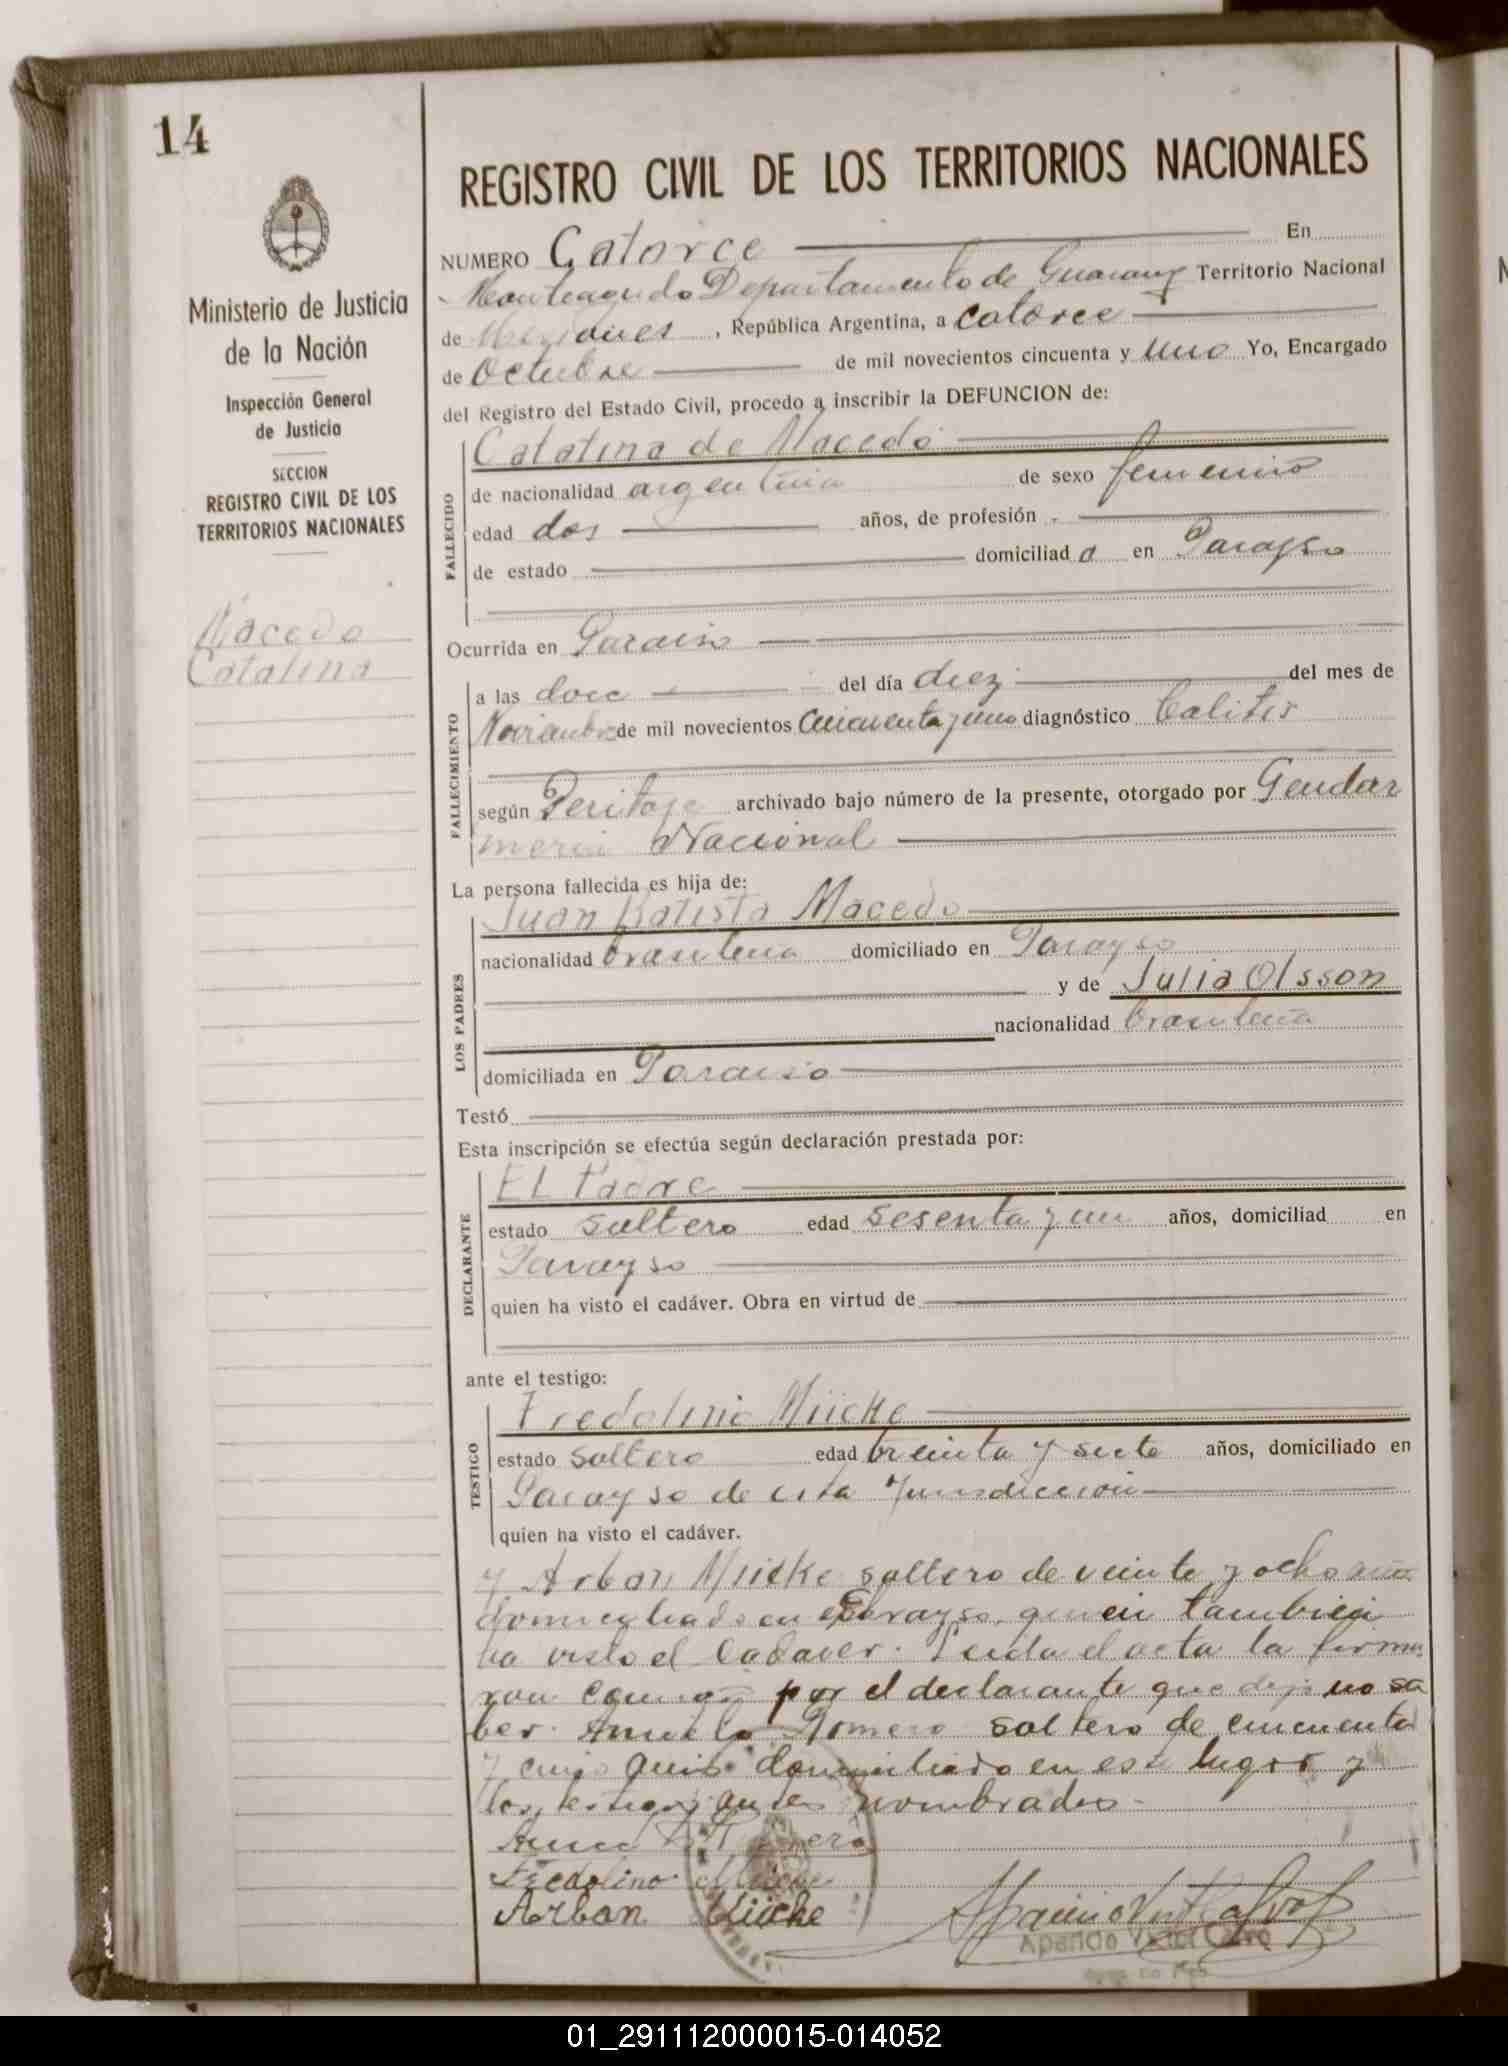 14
REGISTRO CIVIL DE LOS TERRITORIOS NACIONALES
NUMERO Catorce En
Monteagudo Departamento de Guarany Territorio Nacional
de Misiones, República Argentina, a catorce
de Octubre de mil novecientos cincuenta y uno Yo, Encargado
del Registro del Estado Civil, procedo a inscribir la DEFUNCION de:
Ministerio de Justicia
de la Nación
Inspección General
de Justicia
SECCION
REGISTRO CIVIL DE LOS
TERRITORIOS NACIONALES
Macedo
Catalina
FALLECIDO
Catalina de Macedo
de nacionalidad argentina de sexo femenino
edad dos años, de profesión
de estado domiciliad a en Parayso
Ocurrida en Paraiso
FALLECIMIENTO
a las doce del día diez del mes de
Noviembre de mil novecientos cincuenta y uno diagnóstico Colitis
según Peritaje archivado bajo número de la presente, otorgado por Gendar
meria Nacional
La persona fallecida es hija de:
LOS PADRES
Juan Batista Macedo
nacionalidad brasilena domiciliado en Parayso
y de Julia Olsson
nacionalidad brasilena
domiciliada en Paraiso
Testó
Esta inscripción se efectúa según declaración prestada por:
DECLARANTE
El Padre
estado soltero edad sesenta y un años, domiciliad en
Parayso
quien ha visto el cadáver. Obra en virtud de
ante el testigo:
TESTIGO
Fredolino Mücke
estado soltero edad treinta y siete años, domiciliado en
Parayso de esta Jurisdiccion
quien ha visto el cadáver.
y Arban Mücke soltero de veinte y ocho años
domiciliado en Parayso, quien tambien
ha visto el Cadaver. Leida el acta la firma
ron conmigo por el declarante que dijo no sa
ber. Romero soltero de cincuenta
y años domiciliado en este lugar y
los testigos antes nombrados.
Romero
Fredolino Mücke
Arban Mücke
01_291112000015-014052